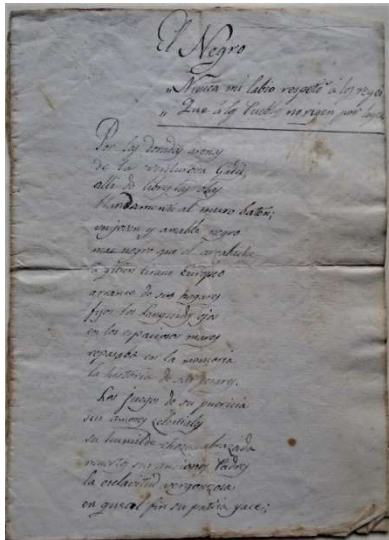 El Negro
„Nunca mi labio respetó á los reyes
„Que á los Pueblos no rigen por leyes
Por las doradas arenas
de la venturosa Gades,
allí do libres las olas
blandamente al muro baten;
un joven y amable negro
mas negro que el azabache
á quien tirano Europeo
arrancó de sus hogares
fijos los languidos ojos
en los espaciosos mares
repasaba en la memoria
la historia de sus pesares.
Los juegos de su puericia
sus amores celestiales
su humilde choza abrazada
muertos sus ancianos Padres
la esclavitud vergonzosa
en que al fin su patria yace;